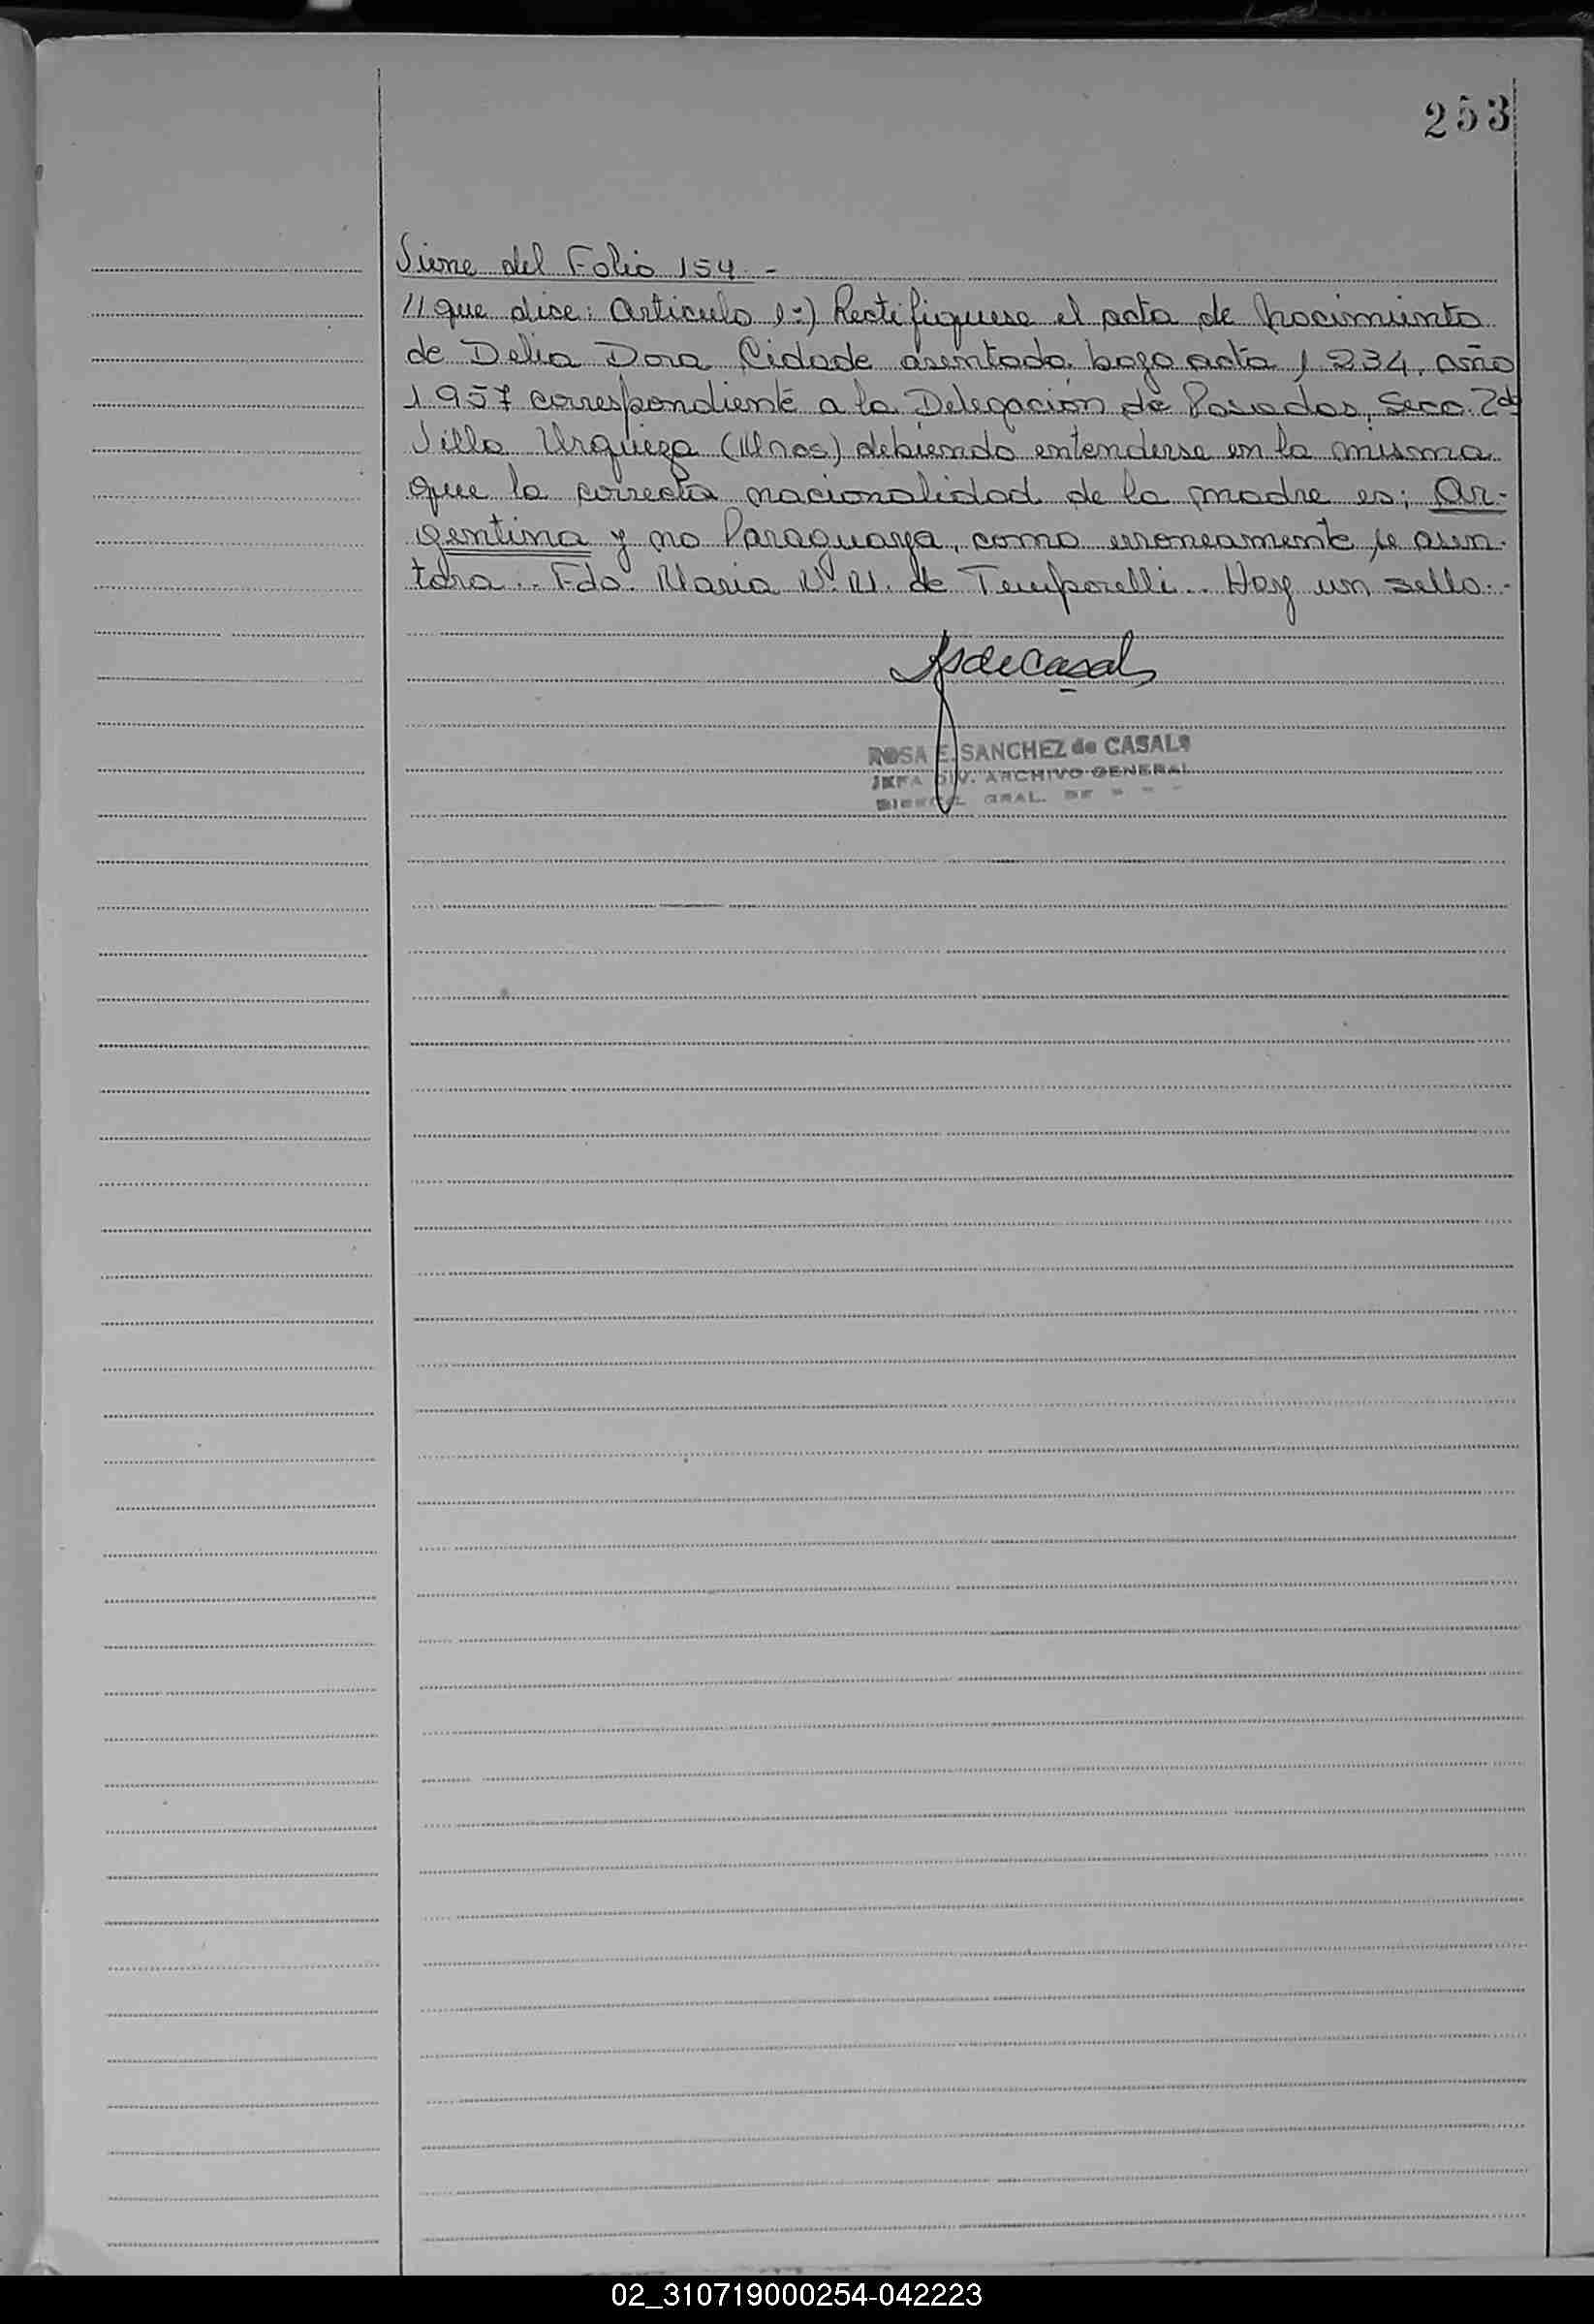 253
Viene del Folio 154.-
//que dice: Artículo 1º) Rectifiquese el acta de Nacimiento
de Delia Dora Cidade asentada bajo acta 1234, año
1957 correspondiente a la Delegación de Posadas, Secc. 2da
Villa Urquiza (Mnes) debiendo entenderse en la misma
que la correcta nacionalidad de la madre es; Ar-
gentina y no Paraguaya, como erroneamente se asen-
tara.. Fdo. Maria de Temporelli.. Hay un sello.-
RSdeCasals
ROSA E. SANCHEZ de CASALS
JEFA DIV. ARCHIVO GENERAL
GRAL. DE
02_310719000254-042223